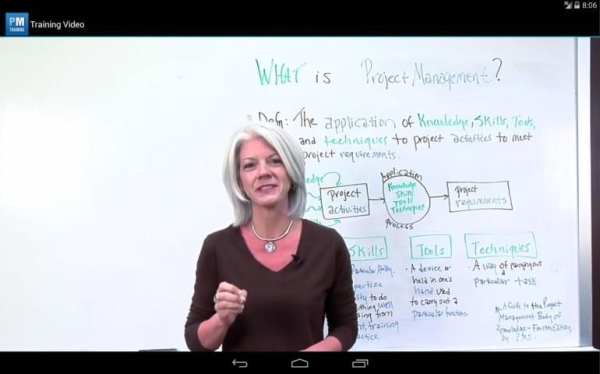 8:06
PM
TRAINING
Training Video
WHAT is Project Management?
Defn: The application of Knowledge, Skills, Tools,
and techniques to project activities to meet
project requirements.
Application
project
activities
Knowledge
Skills
Tools
Techniques
Process
project
requirements
Skills
Tools
Techniques
to do
A device or
held in one's
hand used
to carry out a
particular function
A way of
particular task
A Guide to the Project
Management Body of
Knowledge - Fourth Edition